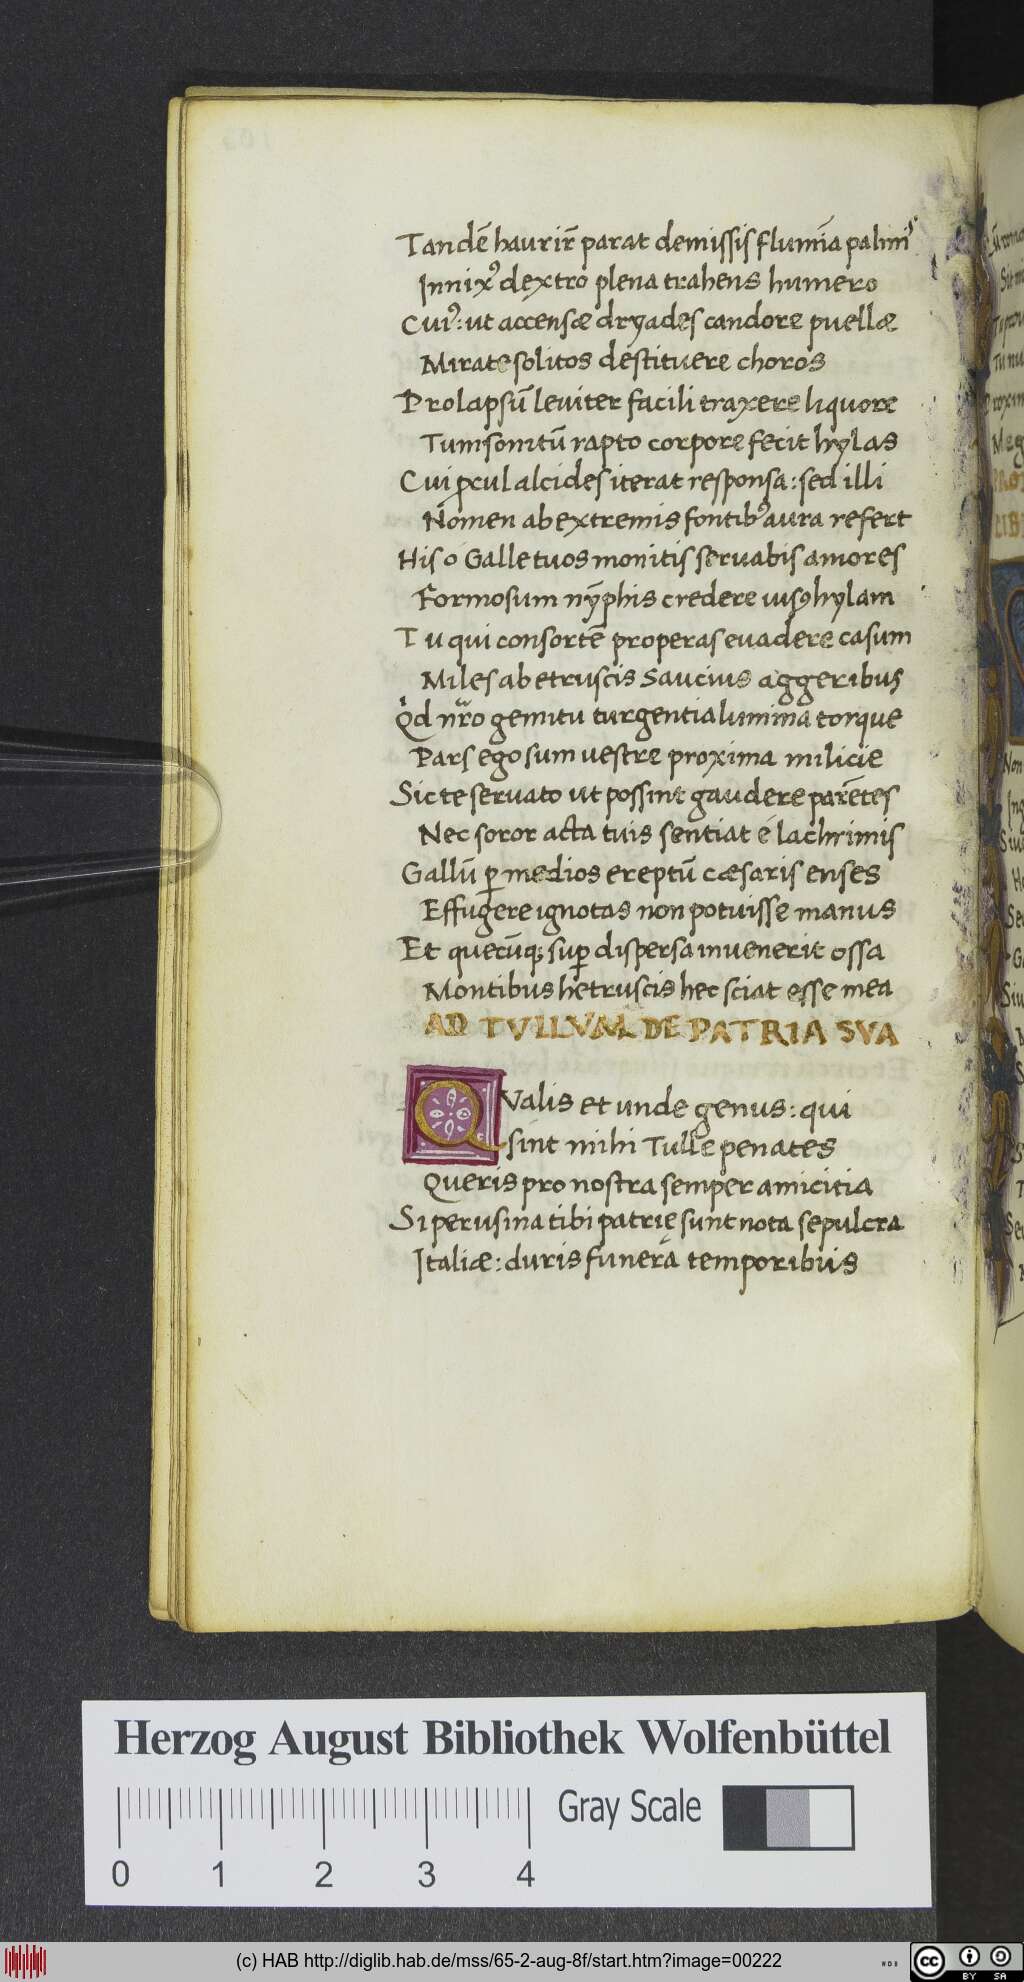 Tandē haurir̄ parat demissis flumīa palmiꝰ
Innixꝰ dextro plena trahens humero
Cuiꝰ: ut accensæ dryades candore puellæ
Mirate solitos destituere choros
Prolapsū leuiter facili traxere liquore
Tum sonitū rapto corpore fecit hylas
Cui ꝓcul alcides iterat responsa: sed illi
Nomen ab extremis fontibꝰ aura refert
His o Galle tuos monitis seruabis amores
Formosum nȳphis credere uisꝰ hylam
Tu qui consortē properas euadere casum
Miles ab etruscis saucius aggeribus
Qd nr̄o gemitu turgentia lumina torque
Pars ego sum uestre proxima milicie
Sic te seruato ut possint gaudere parētes
Nec soror acta tuis sentiat é lachrimis
Gallū ꝑ medios ereptū cæsaris enses
Effugere ignotas non potuisse manus
Et quecūqꝫ suꝑ dispersa inuenerit ossa
Montibus hetruscis hec sciat esse mea
AD TVLLVM DE PATRIA SVA
QValis et unde genus: qui
sint mihi Tulle penates
Queris pro nostra semper amicitia
Si perusina tibi patrię sunt nota sepulcra
Italiæ: duris funera temporibus
Herzog August Bibliothek Wolfenbüttel
Gray Scale
0 1 2 3 4
(c) HAB http://diglib.hab.de/mss/65-2-aug-8f/start.htm?image=00222
cc BY SA